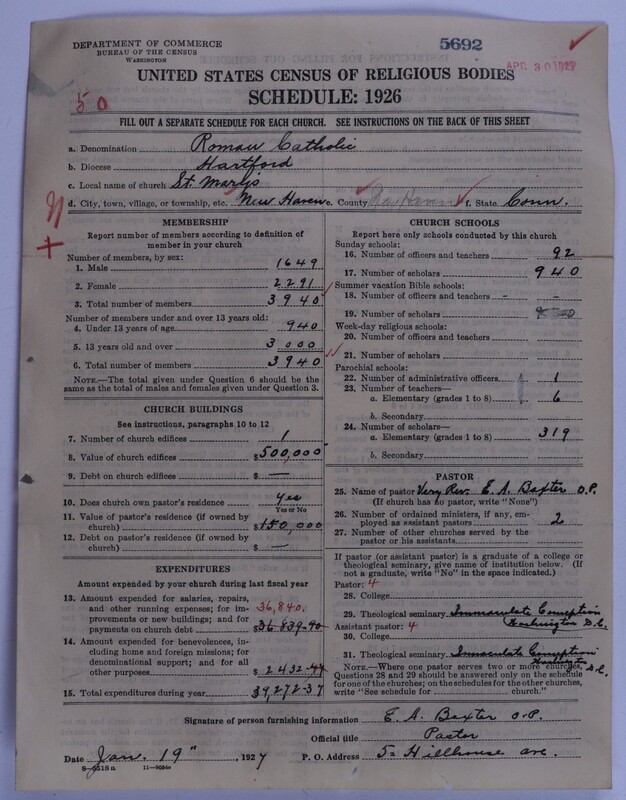 DEPARTMENT OF COMMERCE
BUREAU OF THE CENSUS
WASHINGTON
5692
APR 30 1927
UNITED STATES CENSUS OF RELIGIOUS BODIES
SCHEDULE: 1926
50
FILL OUT A SEPARATE SCHEDULE FOR EACH CHURCH. SEE INSTRUCTIONS ON THE BACK OF THIS SHEET
a. Denomination Roman Catholic
b. Diocese Hartford
c. Local name of church St. Mary's
d. City, town, village, or township, etc. New Haven e. County New Haven f. State Conn.
MEMBERSHIP
Report number of members according to definition of
member in your church
Number of members, by sex:
1. Male 1649
2. Female 2291
3. Total number of members 3940
Number of members under and over 13 years old:
4. Under 13 years of age 940
5. 13 years old and over 3000
6. Total number of members 3940
NOTE.—The total given under Question 6 should be the
same as the total of males and females given under Question 3.
CHURCH BUILDINGS
See instructions, paragraphs 10 to 12
7. Number of church edifices 1
8. Value of church edifices $500,000
9. Debt on church edifices $ —
10. Does church own pastor's residence Yes
Yes or No
11. Value of pastor's residence (if owned by
church) $150,000
12. Debt on pastor's residence (if owned by
church) $ —
EXPENDITURES
Amount expended by your church during last fiscal year
13. Amount expended for salaries, repairs,
and other running expenses; for im-
provements or new buildings; and for
payments on church debt 36,840. $36839.90
14. Amount expended for benevolences, in-
cluding home and foreign missions; for
denominational support; and for all
other purposes $2432.47
15. Total expenditures during year 39,272.37
CHURCH SCHOOLS
Report here only schools conducted by this church
Sunday schools:
16. Number of officers and teachers 92
17. Number of scholars 940
Summer vacation Bible schools:
18. Number of officers and teachers - -
19. Number of scholars
Week-day religious schools:
20. Number of officers and teachers
21. Number of scholars
Parochial schools:
22. Number of administrative officers 1
23. Number of teachers—
a. Elementary (grades 1 to 8) 6
b. Secondary
24. Number of scholars—
a. Elementary (grades 1 to 8) 319
b. Secondary
PASTOR
25. Name of pastor Very Rev. E. A. Baxter O.P.
(If church has no pastor, write "None")
26. Number of ordained ministers, if any, em-
ployed as assistant pastors 2
27. Number of other churches served by the
pastor or his assistants
If pastor (or assistant pastor) is a graduate of a college or
theological seminary, give name of institution below. (If
not a graduate, write "No" in the space indicated.)
Pastor: 4
28. College
29. Theological seminary Immaculate Conception
Washington D.C.
Assistant pastor: 4
30. College
31. Theological seminary Immaculate Conception
Washington D.C.
NOTE.—Where one pastor serves two or more churches,
Questions 28 and 29 should be answered only on the schedule
for one of the churches; on the schedules for the other churches,
write "See schedule for church."
Signature of person furnishing information E. A. Baxter O.P.
Official title Pastor
Date Jan. 19", 1927 P. O. Address 5= Hillhouse ave.